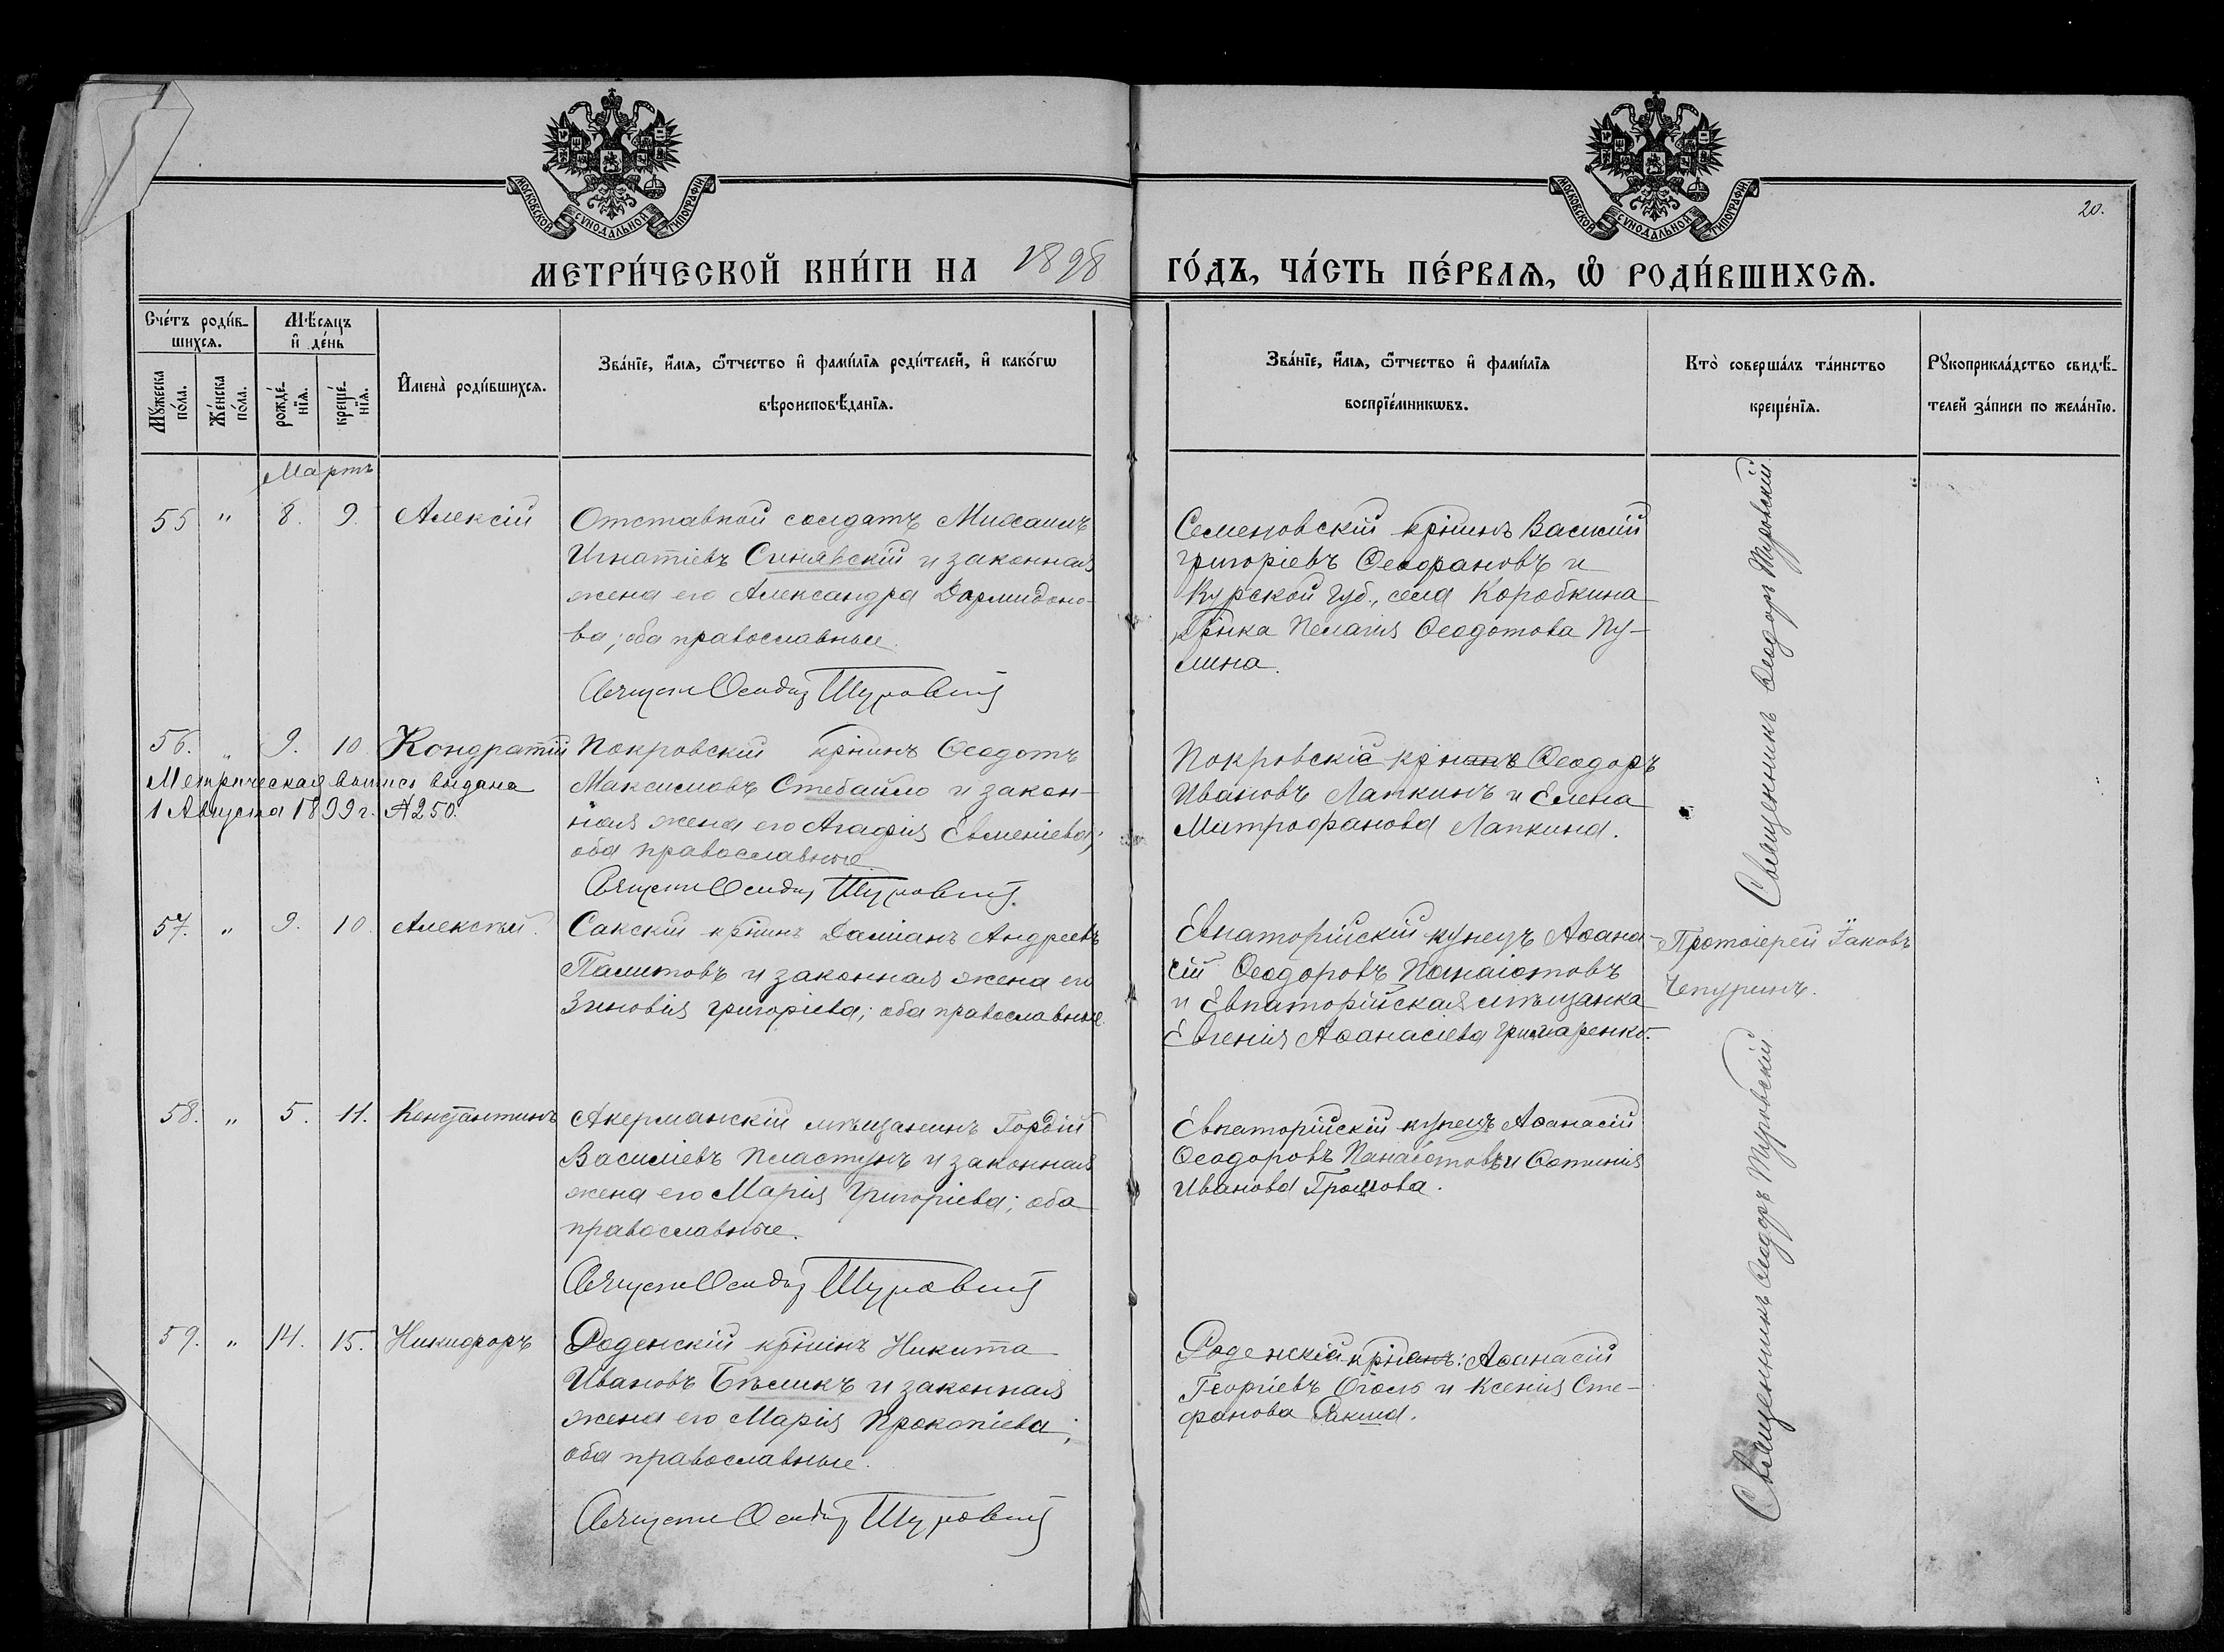 МОСКОВСКОЙ СѴНОДАЛЬНОЙ ТИПОГРАФІИ
МОСКОВСКОЙ СѴНОДАЛЬНОЙ ТИПОГРАФІИ
20.
МЕТРИ́ЧЕСКОЙ КНИ́ГИ НА 1898 ГО́ДЪ, ЧА́СТЬ ПЕ́РВАѦ, Ѡ҆ РОДИ́ВШИХСѦ.
Сче́тъ роди́в-
шихсѧ.
Мѣ́сяцъ
и҆ де́нь
Мꙋ́жеска
по́ла.
Же́нска
по́ла.
рожде́-
нїѧ.
креще́-
нїѧ.
И҆мена̀ роди́вшихсѧ.
Зва́нїе, и҆́мѧ, ѻ҆́тчество и҆ фами́лїѧ роди́телей, и҆ како́гѡ
вѣроисповѣ́данїѧ.
Зва́нїе, и҆́мѧ, ѻ҆́тчество и҆ фами́лїѧ
воспрїе́мникѡвъ.
Кто̀ соверша́лъ та́инство
креще́нїѧ.
Рꙋкоприкла́дство свидѣ́-
телей за́писи по жела́нїю.
Мартъ
55 " 8. 9. Алексій
Отставной солдатъ Михаилъ
Игнатіевъ Синявскій и законная
жена его Александра Дормидоно-
ва; оба православные.
Священ Ѳеодор Шуровскій
Семеновскій крнинъ Василій
Григоріевъ Ѳеофановъ и
Курской губ., села Коробкина
крнка Пелагія Ѳеодотова Пу-
лина.
Священникъ Ѳеодоръ Шуровскій
56. " 9. 10. Кондратій
Метрическая выпись выдана
1 Августа 1899 г. № 250.
Покровскій крнинъ Ѳеодотъ
Максимовъ Стебайло и закон-
ная жена его Агафія Евменіева;
оба православные
Священ Ѳеодор Шуровскій.
Покровскіе крне Ѳеодоръ
Ивановъ Лапкинъ и Елена
Митрофанова Лапкина.
57. " 9. 10 Алексѣй.
Сакскій крнинъ Даміанъ Андреевъ
Палитовъ и законная жена его
Зиновія Григоріева; оба православные.
Евпаторійскій купецъ Аѳана-
сій Ѳеодоровъ Панаіотовъ
и Евпаторійская мѣщанка
Евгенія Аѳанасіева Гримаренко.
Протоіерей Іаковъ
Чепуринъ.
58. " 5. 11. Константинъ
Акерманскій мѣщанинъ Гордій
Василіевъ Пластунъ и законная
жена его Марія Григоріева; оба
православные.
Священ Ѳеодор Шуровскій
Евпаторійскій купецъ Аѳанасій
Ѳеодоровъ Панаіотовъ и Фотинія
Иванова Грошова.
Священникъ Ѳеодоръ Шуровскій
59. " 14. 15. Никифоръ
Роденскій крнинъ Никита
Ивановъ Бѣликъ и законная
жена его Марія Прокопіева;
оба православные.
Священ Ѳеодор Шуровскій
Роденскіе крне: Аѳанасій
Георгіевъ Оголь и Ксенія Сте-
фанова Ракша.